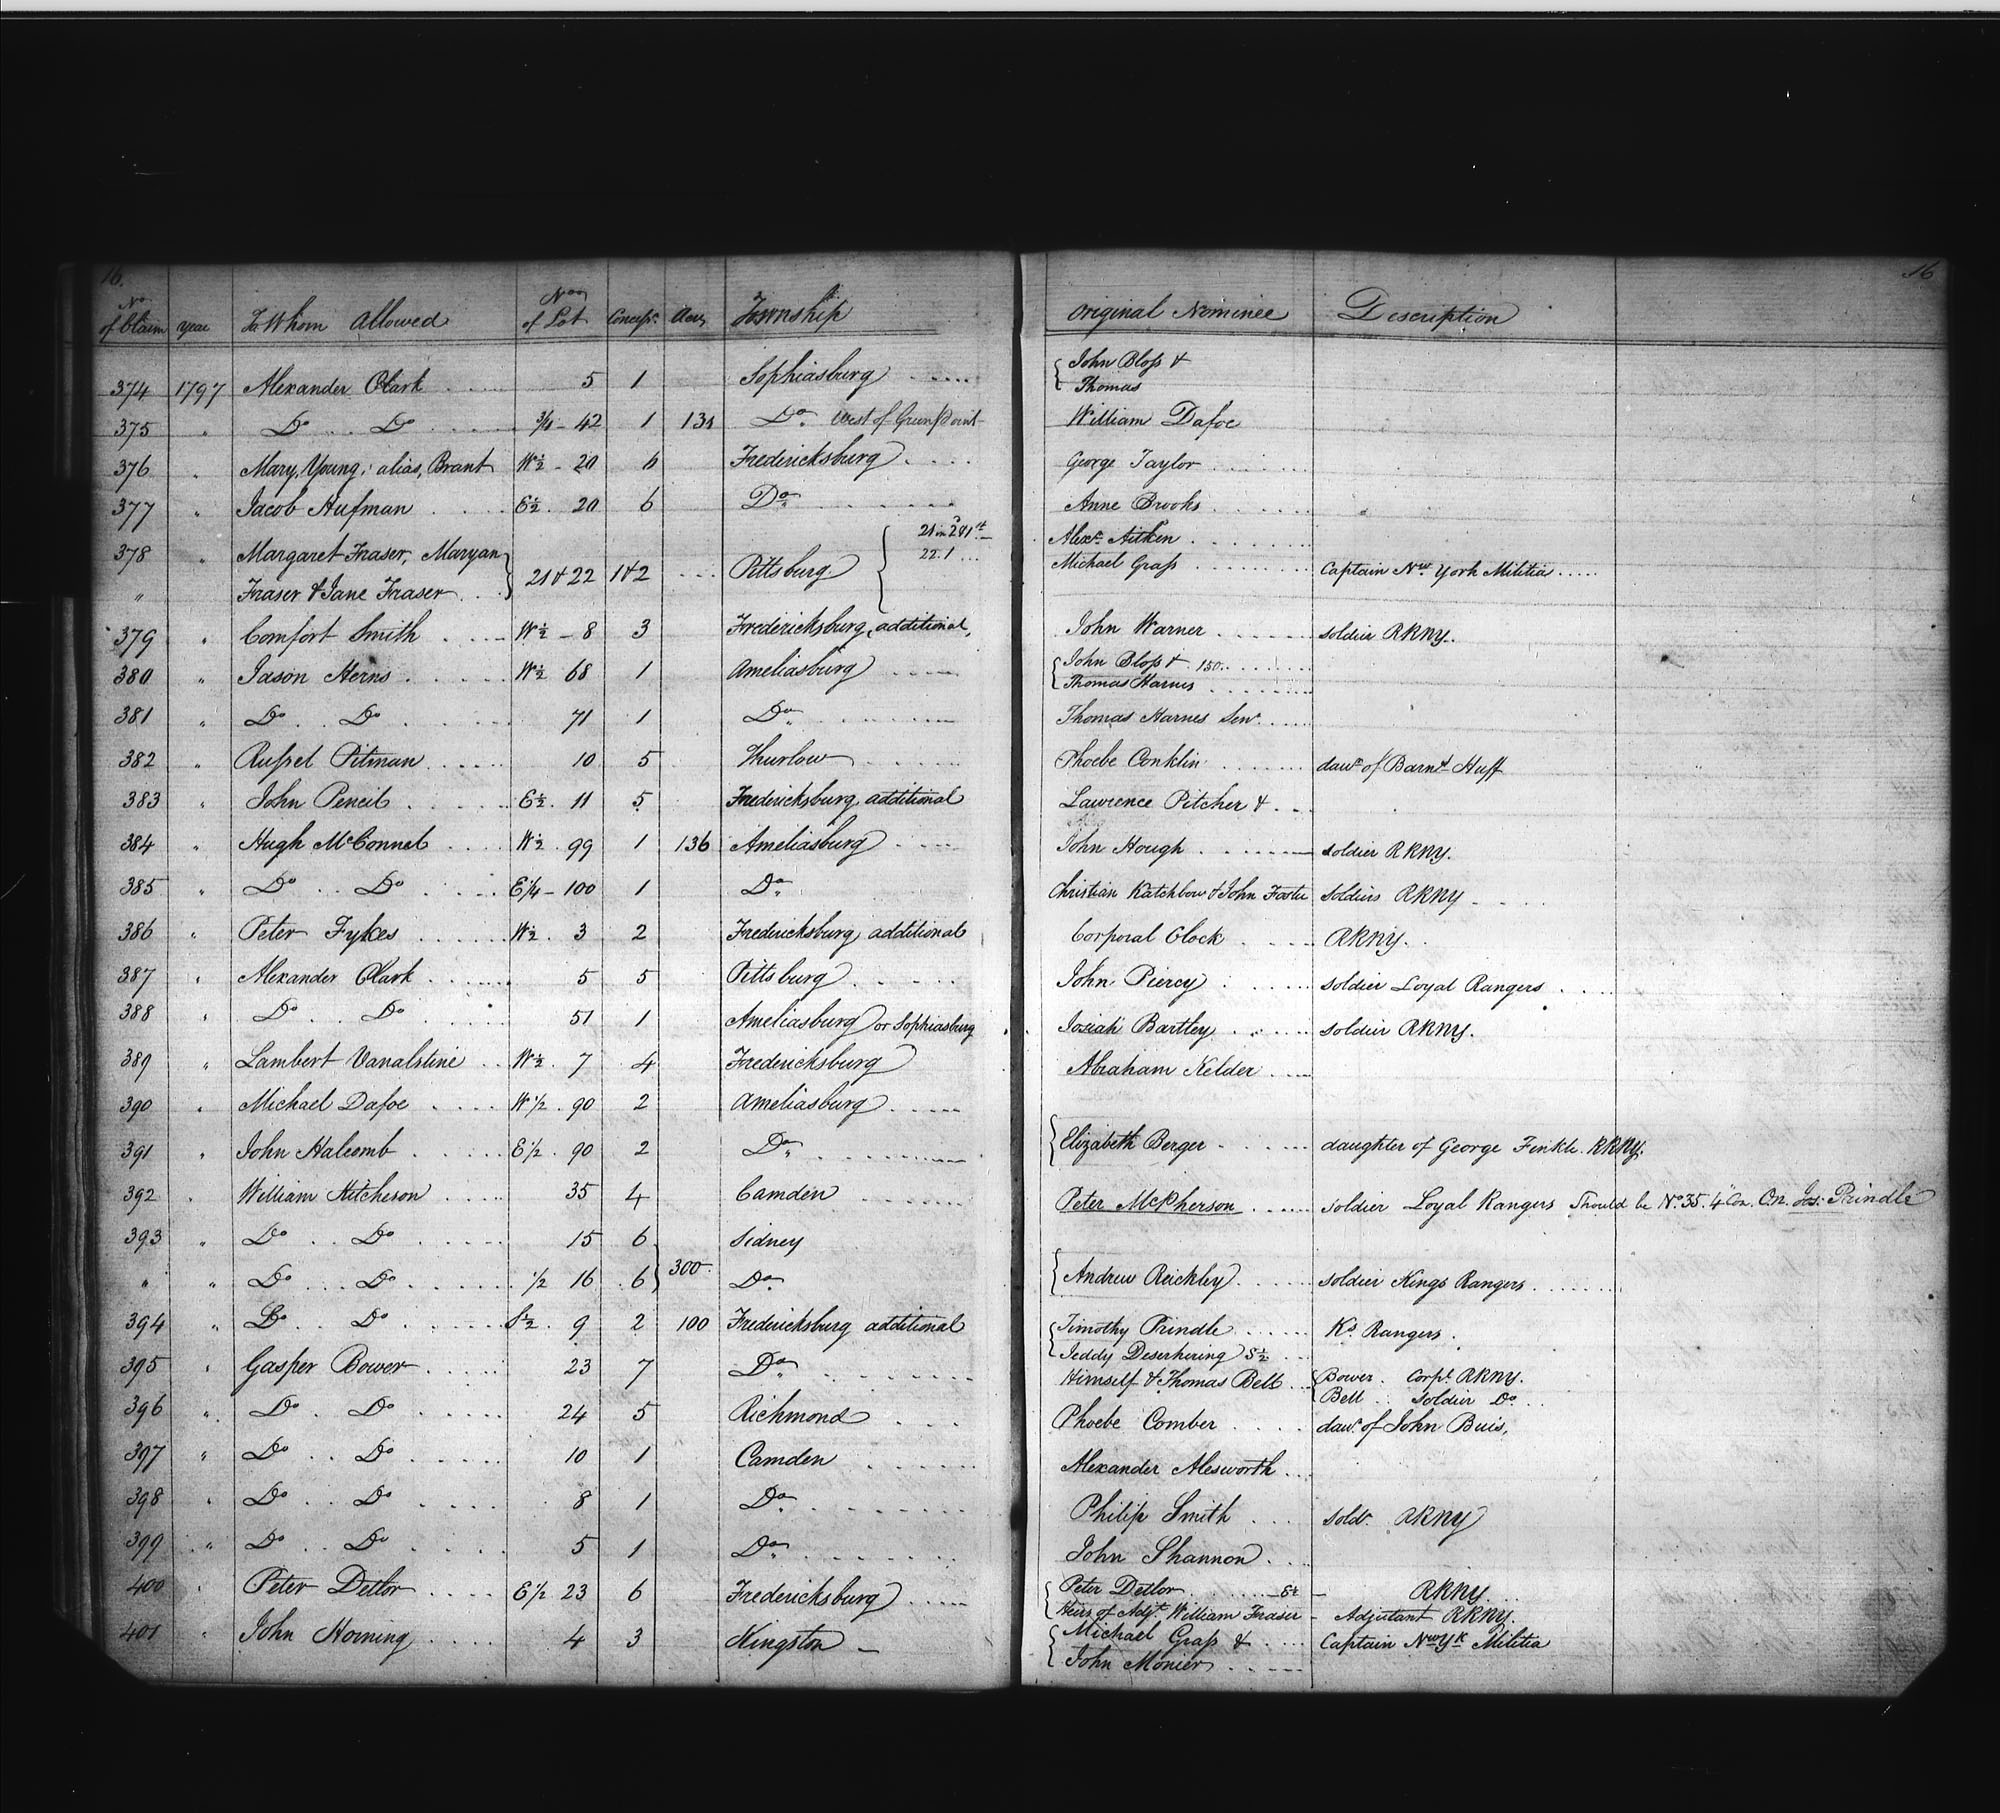 16. 16
No of Claim year To Whom Allowed Nos of Lot Concessn. Acres Township Original Nominee Description
374 1797 Alexander Clark 5 1 Sophiasburg { John Bloss &
Thomas
375 " Do Do 3/4 - 42 1 131 Do West of Green Point William Dafoe
376 " Mary Young, alias, Brant W½ - 20 6 Fredericksburg George Taylor
377 " Jacob Hufman E½ 20 6 Do Anne Brooks
378 " Margaret Fraser, Maryan } 21 & 22 1 & 2 Pittsburg { 21 in 2 & 1st Alexr. Aitken
" Fraser & Jane Fraser 22. 1 Michael Grass Captain New York Militia
379 " Comfort Smith W½ - 8 3 Fredericksburg additional John Warner soldier RRNY.
380 " Jason Herns W½ 68 1 Ameliasburg { John Bloss & 150
Thomas Harnes
381 " Do Do 71 1 Do Thomas Harnes Senr.
382 " Russel Pitman 10 5 Thurlow Phoebe Conklin daur. of Barnt. Huff
383 " John Pencil E½ 11 5 Fredericksburg additional Lawrence Pitcher &
384 " Hugh McConnel W½ 99 1 136 Ameliasburg John Hough soldier RRNY.
385 " Do Do E¼ - 100 1 Do Christian Katchbow & John Foster soldiers RRNY
386 " Peter Fykes W½ 3 2 Fredericksburg additional Corporal Clock RRNY.
387 " Alexander Clark 5 5 Pittsburg John Piercy soldier Loyal Rangers
388 " Do Do 51 1 Ameliasburg or Sophiasburg Josiah Bartley soldier RRNY.
389 " Lambert Vanalstine W½ 7 4 Fredericksburg Abraham Kelder
390 " Michael Dafoe W½ 90 2 Ameliasburg
391 " John Halcomb E½ 90 2 Do { Elizabeth Berger daughter of George Finkle. RRNY.
392 " William Hitcheson 35 4 Camden Peter McPherson soldier Loyal Rangers Should be No. 35. 4 Con. On. Jos: Prindle
393 " Do Do 15 6 } 300 Sidney
" " Do Do ½ 16 6 Do { Andrew Reickley soldier Kings Rangers
394 " Do Do S½ 9 2 100 Fredericksburg additional { Timothy Prindle Ks. Rangers.
Teddy Deserhering S½
395 " Gasper Bower 23 7 Do Himself & Thomas Bell { Bower. Corpl. RRNY.
Bell Soldier Do
396 " Do Do 24 5 Richmond Phoebe Comber daur. of John Buis,
397 " Do Do 10 1 Camden Alexander Alesworth
398 " Do Do 8 1 Do Philip Smith soldr. RRNY
399 " Do Do 5 1 Do John Shannon
400 " Peter Detlor E½ 23 6 Fredericksburg { Peter Detlor E½ - RRNY.
Heirs of Adjt. William Fraser - Adjutant RRNY.
401 " John Horning 4 3 Kingston { Michael Grass & Captain New Yk Militia
John Monier